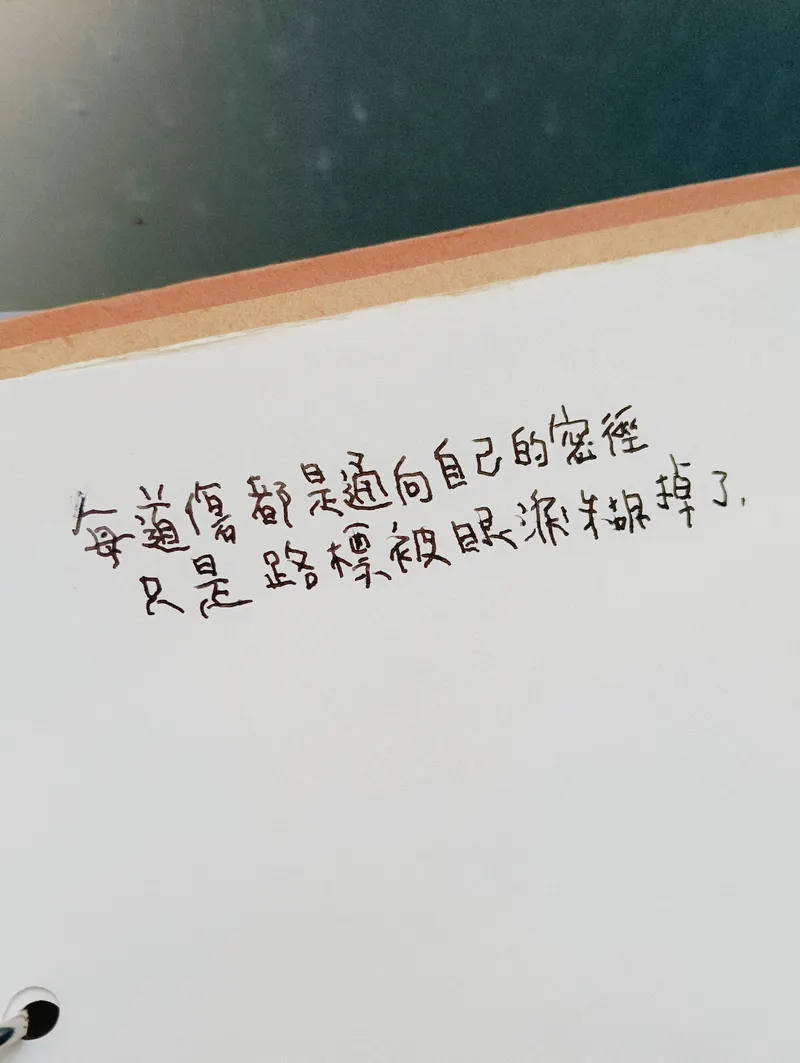 每道傷都是通向自己的密徑
只是路標被眼淚糊掉了.